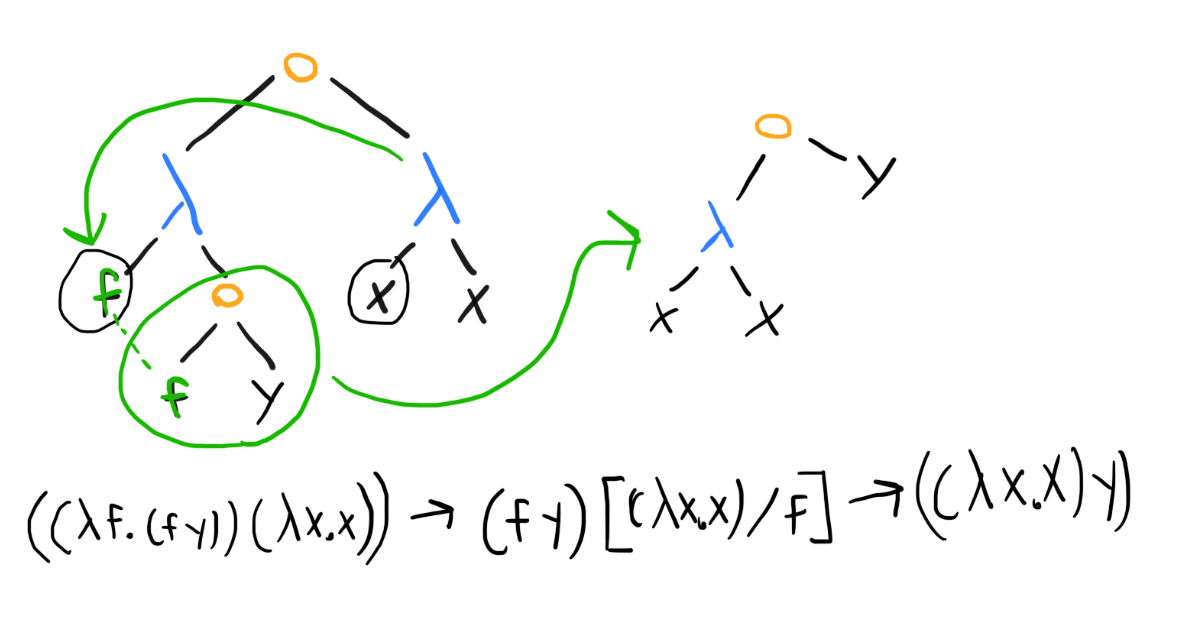 O
λ λ
f O x x
f y
O
y
λ
x x
((λf.(fy))(λx.x)) → (fy)[(λx.x)/f] → ((λx.x)y)